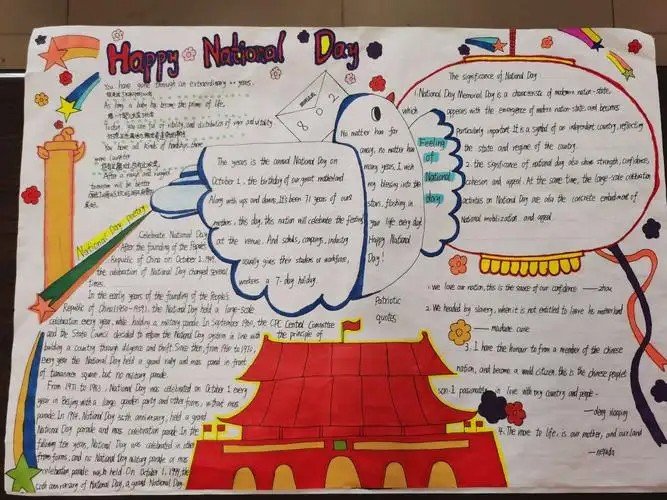 Happy National Day
You have gone through an extraordinary •• years.
As tiny a baby has become the prime of life.
Today, you are full of vitality, and distribution of vigor and vitality
You have all kinds of hardships, three
more laughter
After a rough and rugged
tomorrow will be better
National Day Poetry
802
The years is the annual National Day on
October 1, the birthday of our great motherland
Along with ups and downs, It's been 71 years of our
mothers, this day, this nation will celebrate the festival
at the venue. And schools, companys, industry
usually goes their studios or workforce,
workers a 7-day holiday.
No matter how far
away, no matter how
many years, I wish
my blessing into the
stars, flashing in
your life every day.
Happy National
Day!
Feeling
of
National
day
The significance of National Day
1. National Day Memorial Day is a characteristic of modern nation-state,
which appeares with the emergence of modern nation-state and becomes
particularly important. It is a symbol of an independent country, reflecting
the state and regime of the country.
2. the significance of national day also show strength, confidence,
cohesion and appeal. At the same time, the large-scale celebration
activities on National Day are also the concrete embodiment of
National mobilization and appeal.
Celebrate National Day
After the founding of the People's
Republic of China on October 1, 1949,
the celebration of National Day changed several
times.
In the early years of the founding of the People's
Republic of China (1950-1959), the National Day held a large-scale
celebration every year while holding a military parade. In September 1960, the CPC Central Committee
and the State Council decided to reform the National Day system in line with the principle of
building a country through diligence and thrift. Since then, from 1960 to 1970,
every year the National Day held a grand rally and mass parad in front
of tiananmen square, but no military parade.
From 1971 to 1983, National Day was celebrated on October 1 every
year in Beijing with a large garden party and other forms, without mass
parade. In 1984, National Day 35th anniversary, held a grand
National Day parade and mass celebration parade. In the
following ten years, National Day was celebrated in other
forms, and no National Day military parade or mass
celebration parade was held. On October 1, 1999, the
50th anniversary of National Day, a grand National Day
Patriotic
quotes
1. we love our nation, this is the sauce of our confidence. —— zhou
2. We headed by slavery, when it is not entitled to leave his motherland
—— madame curie
3. I have the honour to from a member of the chinese
nation, and become a world citizen. this is the chinese people's
son. I passionately in love with my country and people.
—— deng xiaoping
4. The more to life, is our mother, and our land
—— neruda